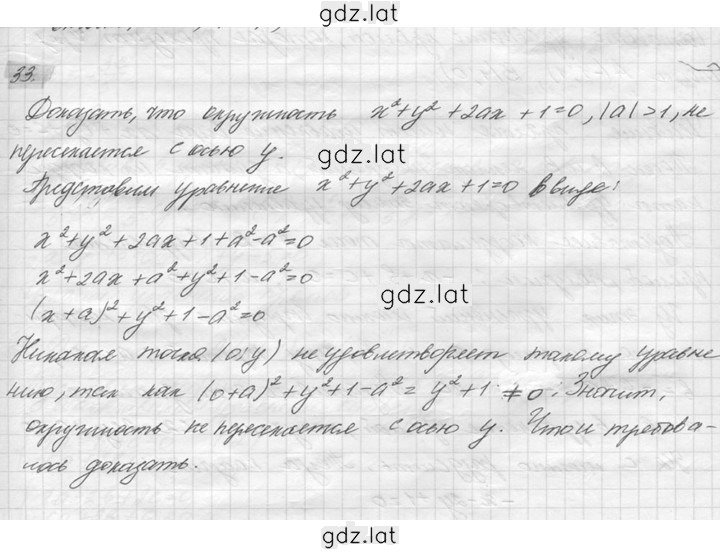 gdz.lat
33.
Доказать, что окружность x²+y²+2ax+1=0, |a|>1, не
пересекается с осью y.
gdz.lat
Представим уравнение x²+y²+2ax+1=0 в виде:
x²+y²+2ax+1+a²-a²=0
x²+2ax+a²+y²+1-a²=0
gdz.lat
(x+a)²+y²+1-a²=0
Никакая точка (0;y) не удовлетворяет такому уравне-
нию, так как (0+a)²+y²+1-a²=y²+1≠0. Значит,
окружность не пересекается с осью y. Что и требова-
лось доказать.
gdz.lat